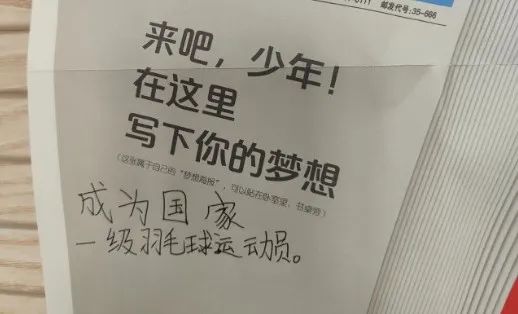 邮发代号:35-666
来吧，少年！
在这里
写下你的梦想
（这张属于自己的“梦想海报”，可以贴在卧室里、书桌旁）
成为国家
一级羽毛球运动员。